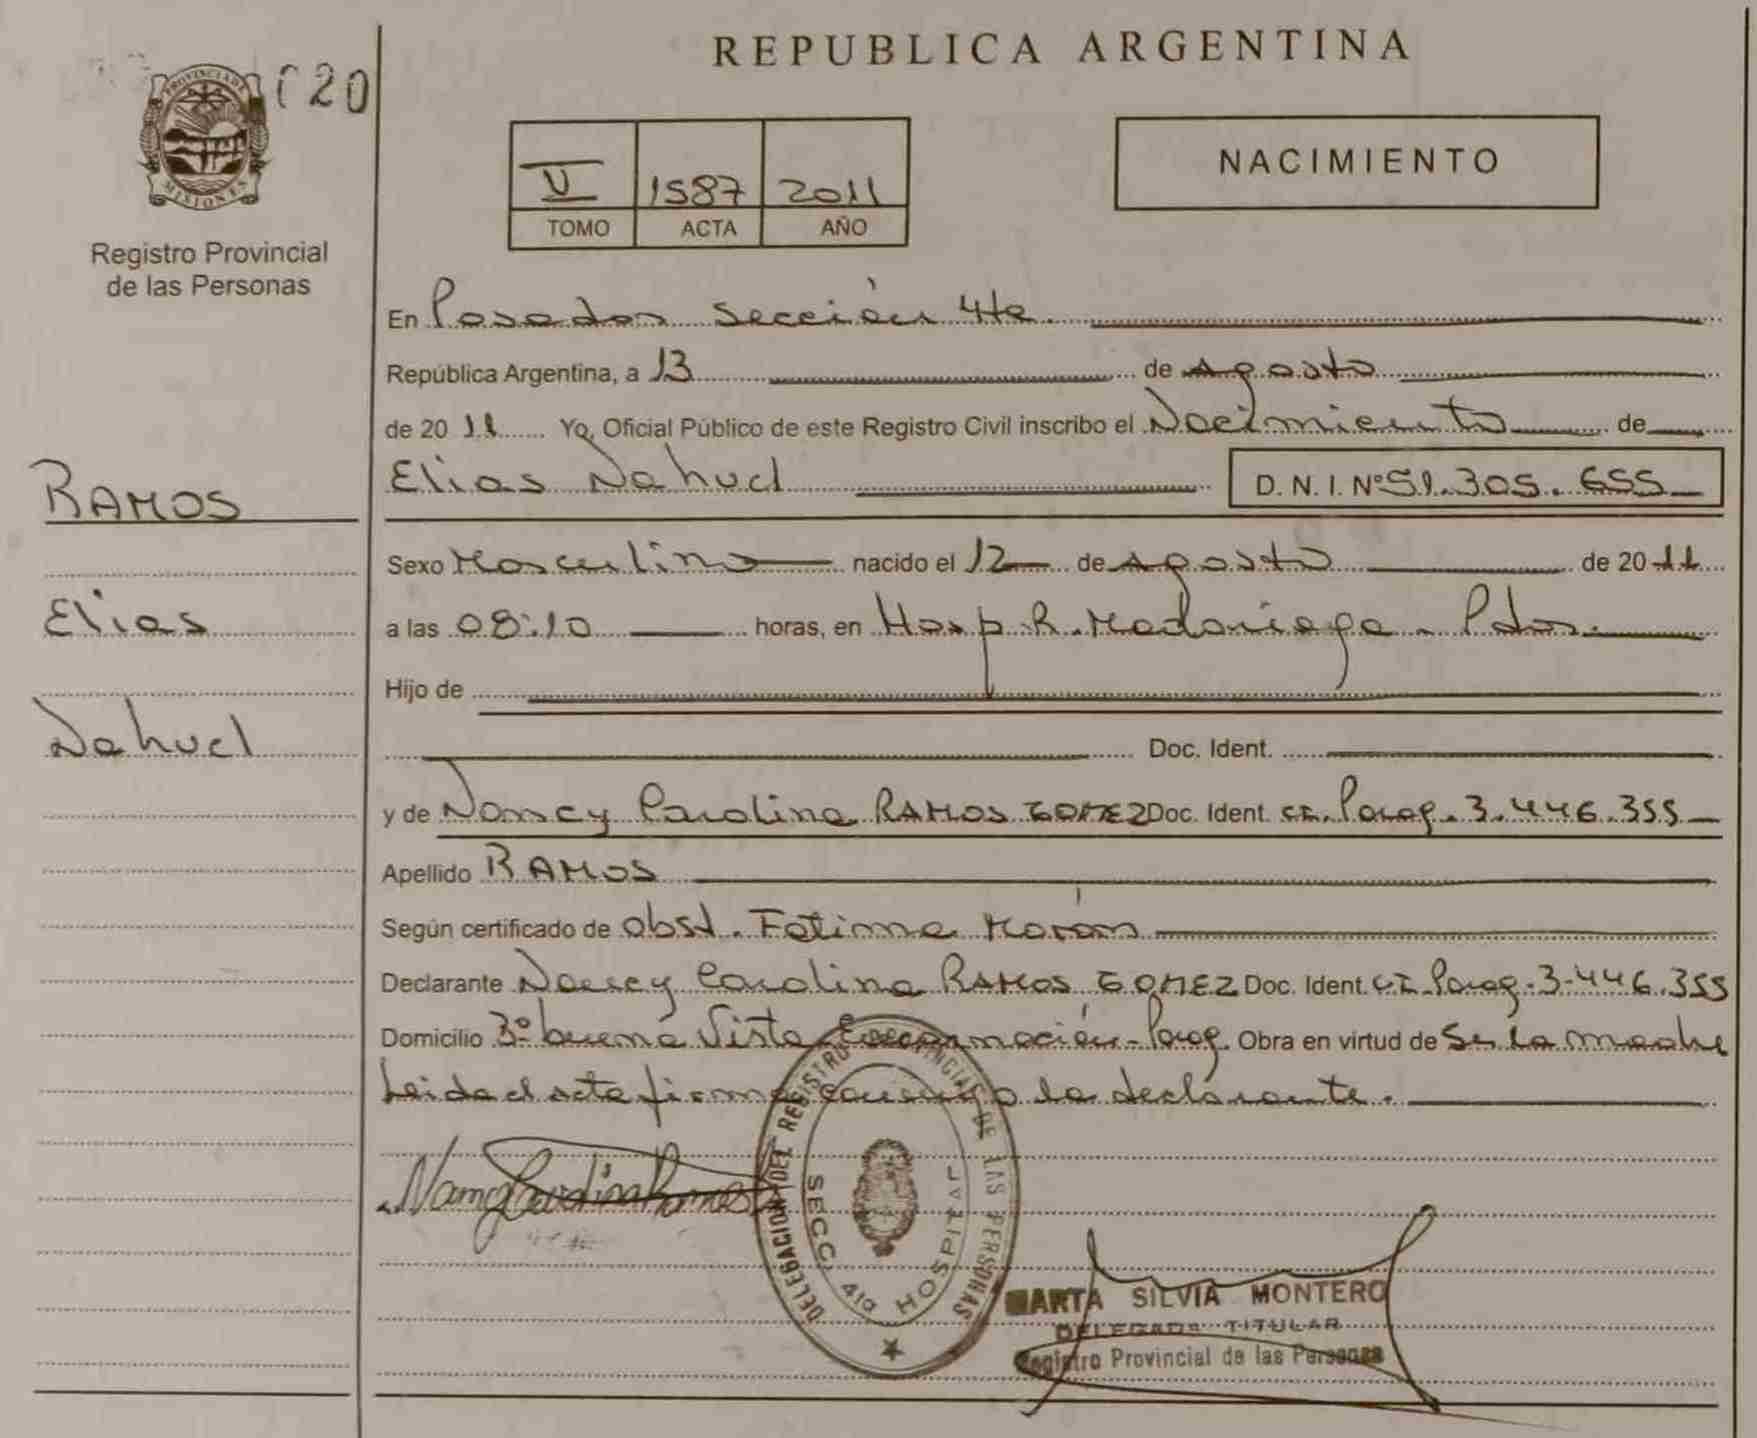 REPUBLICA ARGENTINA
020
PROVINCIA DE
MISIONES
Registro Provincial
de las Personas
V 1587 2011
TOMO ACTA AÑO
NACIMIENTO
En Posadas Sección 4ta.
República Argentina, a 13 de Agosto
de 2011 Yo, Oficial Público de este Registro Civil inscribo el Nacimiento de
Elias Nahuel D. N. I. Nº 51.305.655
RAMOS
Elias
Nahuel
Sexo Masculino nacido el 12 de Agosto de 2011
a las 08:10 horas, en Hosp. R. Madariaga - Pdas.
Hijo de
Doc. Ident.
y de Nancy Carolina RAMOS GOMEZ Doc. Ident. CI. Parag. 3.446.355
Apellido RAMOS
Según certificado de obst. Fatima Morán
Declarante Nancy Carolina RAMOS GOMEZ Doc. Ident. CI. Parag. 3.446.355
Domicilio 3º buena Vista Encarnación - Parag. Obra en virtud de Ser la madre
Leida el acta firma conmigo la declarante.
Nancy Carolina Ramos
DELEGACION DEL REGISTRO PROVINCIAL DE LAS PERSONAS
SECC. 4ta HOSPITAL
MARTA SILVIA MONTERO
DELEGADA TITULAR
Registro Provincial de las Personas